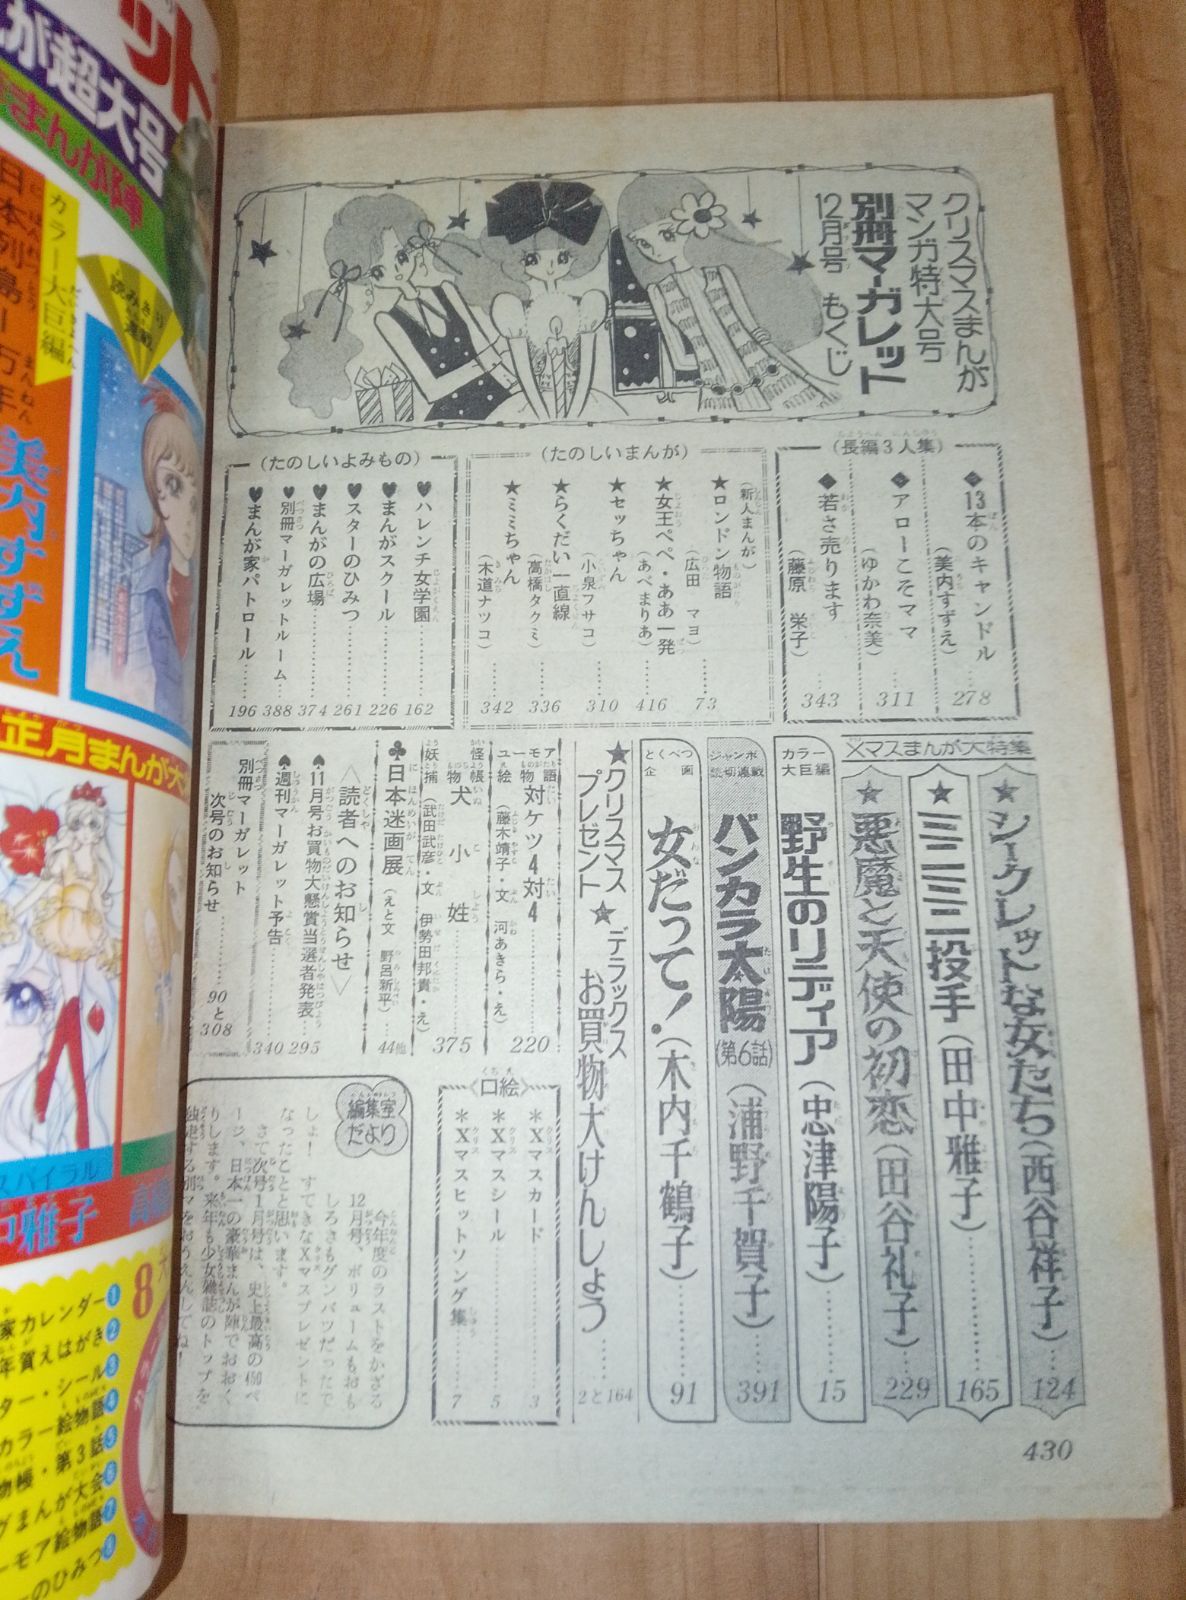 クリスマスまんが
マンガ特大号
別冊マーガレット
12月号 もくじ
(長編3人集)
◆13本のキャンドル
(美内すずえ)……278
◆アローこそママ
(ゆかわ奈美)……311
◆若さ売ります
(藤原 栄子)……343
(たのしいまんが)
(新人まんが)
★ロンドン物語
(広田 マヨ)……73
★女王ペペ・ああ一発
(あべまりあ)……416
★セッちゃん
(小泉フサコ)……310
★らくだい一直線
(高橋タクミ)……336
★ミミちゃん
(木道ナツコ)……342
(たのしいよみもの)
♥ハレンチ女学園……162
♥まんがスクール……226
♥スターのひみつ……261
♥まんがの広場……374
♥別冊マーガレットルーム……388
♥まんが家パトロール……196
Xマスまんが大特集
★シークレットな女たち(西谷祥子)……124
★ミニミニ投手(田中雅子)……165
★悪魔と天使の初恋(田谷礼子)……229
カラー大巨編
野生のリディア(忠津陽子)……15
ジャンボ読切連載
バンカラ太陽(第6話)(浦野千賀子)……391
とくべつ企画
女だって!(木内千鶴子)……91
★クリスマスプレゼント★デラックスお買物大けんしょう……2と164
ユーモア物語 対ケツ4対4……220
絵(藤木靖子・文 河あきら・え)
怪物帳 犬小姓……375
妖捕(武田武彦・文 伊勢田邦貴・え)
♣日本迷画展(えと文 野呂新平)……44他
〈読者へのお知らせ〉
♠11月号お買物大懸賞当選者発表……295
♠週刊マーガレット予告……340
別冊マーガレット
次号のお知らせ……90と308
〈口絵〉
*Xマスカード……3
*Xマスシール……5
*Xマスヒットソング集……7
編集室だより
今年度のラストをかざる
12月号、ボリュームもおも
しろさもグンバツだったで
しょ! すてきなXマスプレゼントに
なったことと思います。
さて次号1月号は、史上最高の450ペ
ージ、日本一の豪華まんが陣でおおく
りします。来年も少女雑誌のトップを
独走する別マをおうえんしてね!
430
ット
が超大号
まんが陣
カラー大巨編
日本列島一万年
読みきり連載
美内すずえ
正月まんが大
スパイラル
中雅子
家カレンダー1
年賀えはがき2
ター・シール3
カラー絵物語4
物帳・第3話5
グまんが大会6
ーモア絵物語7
ーのひみつ8
8大